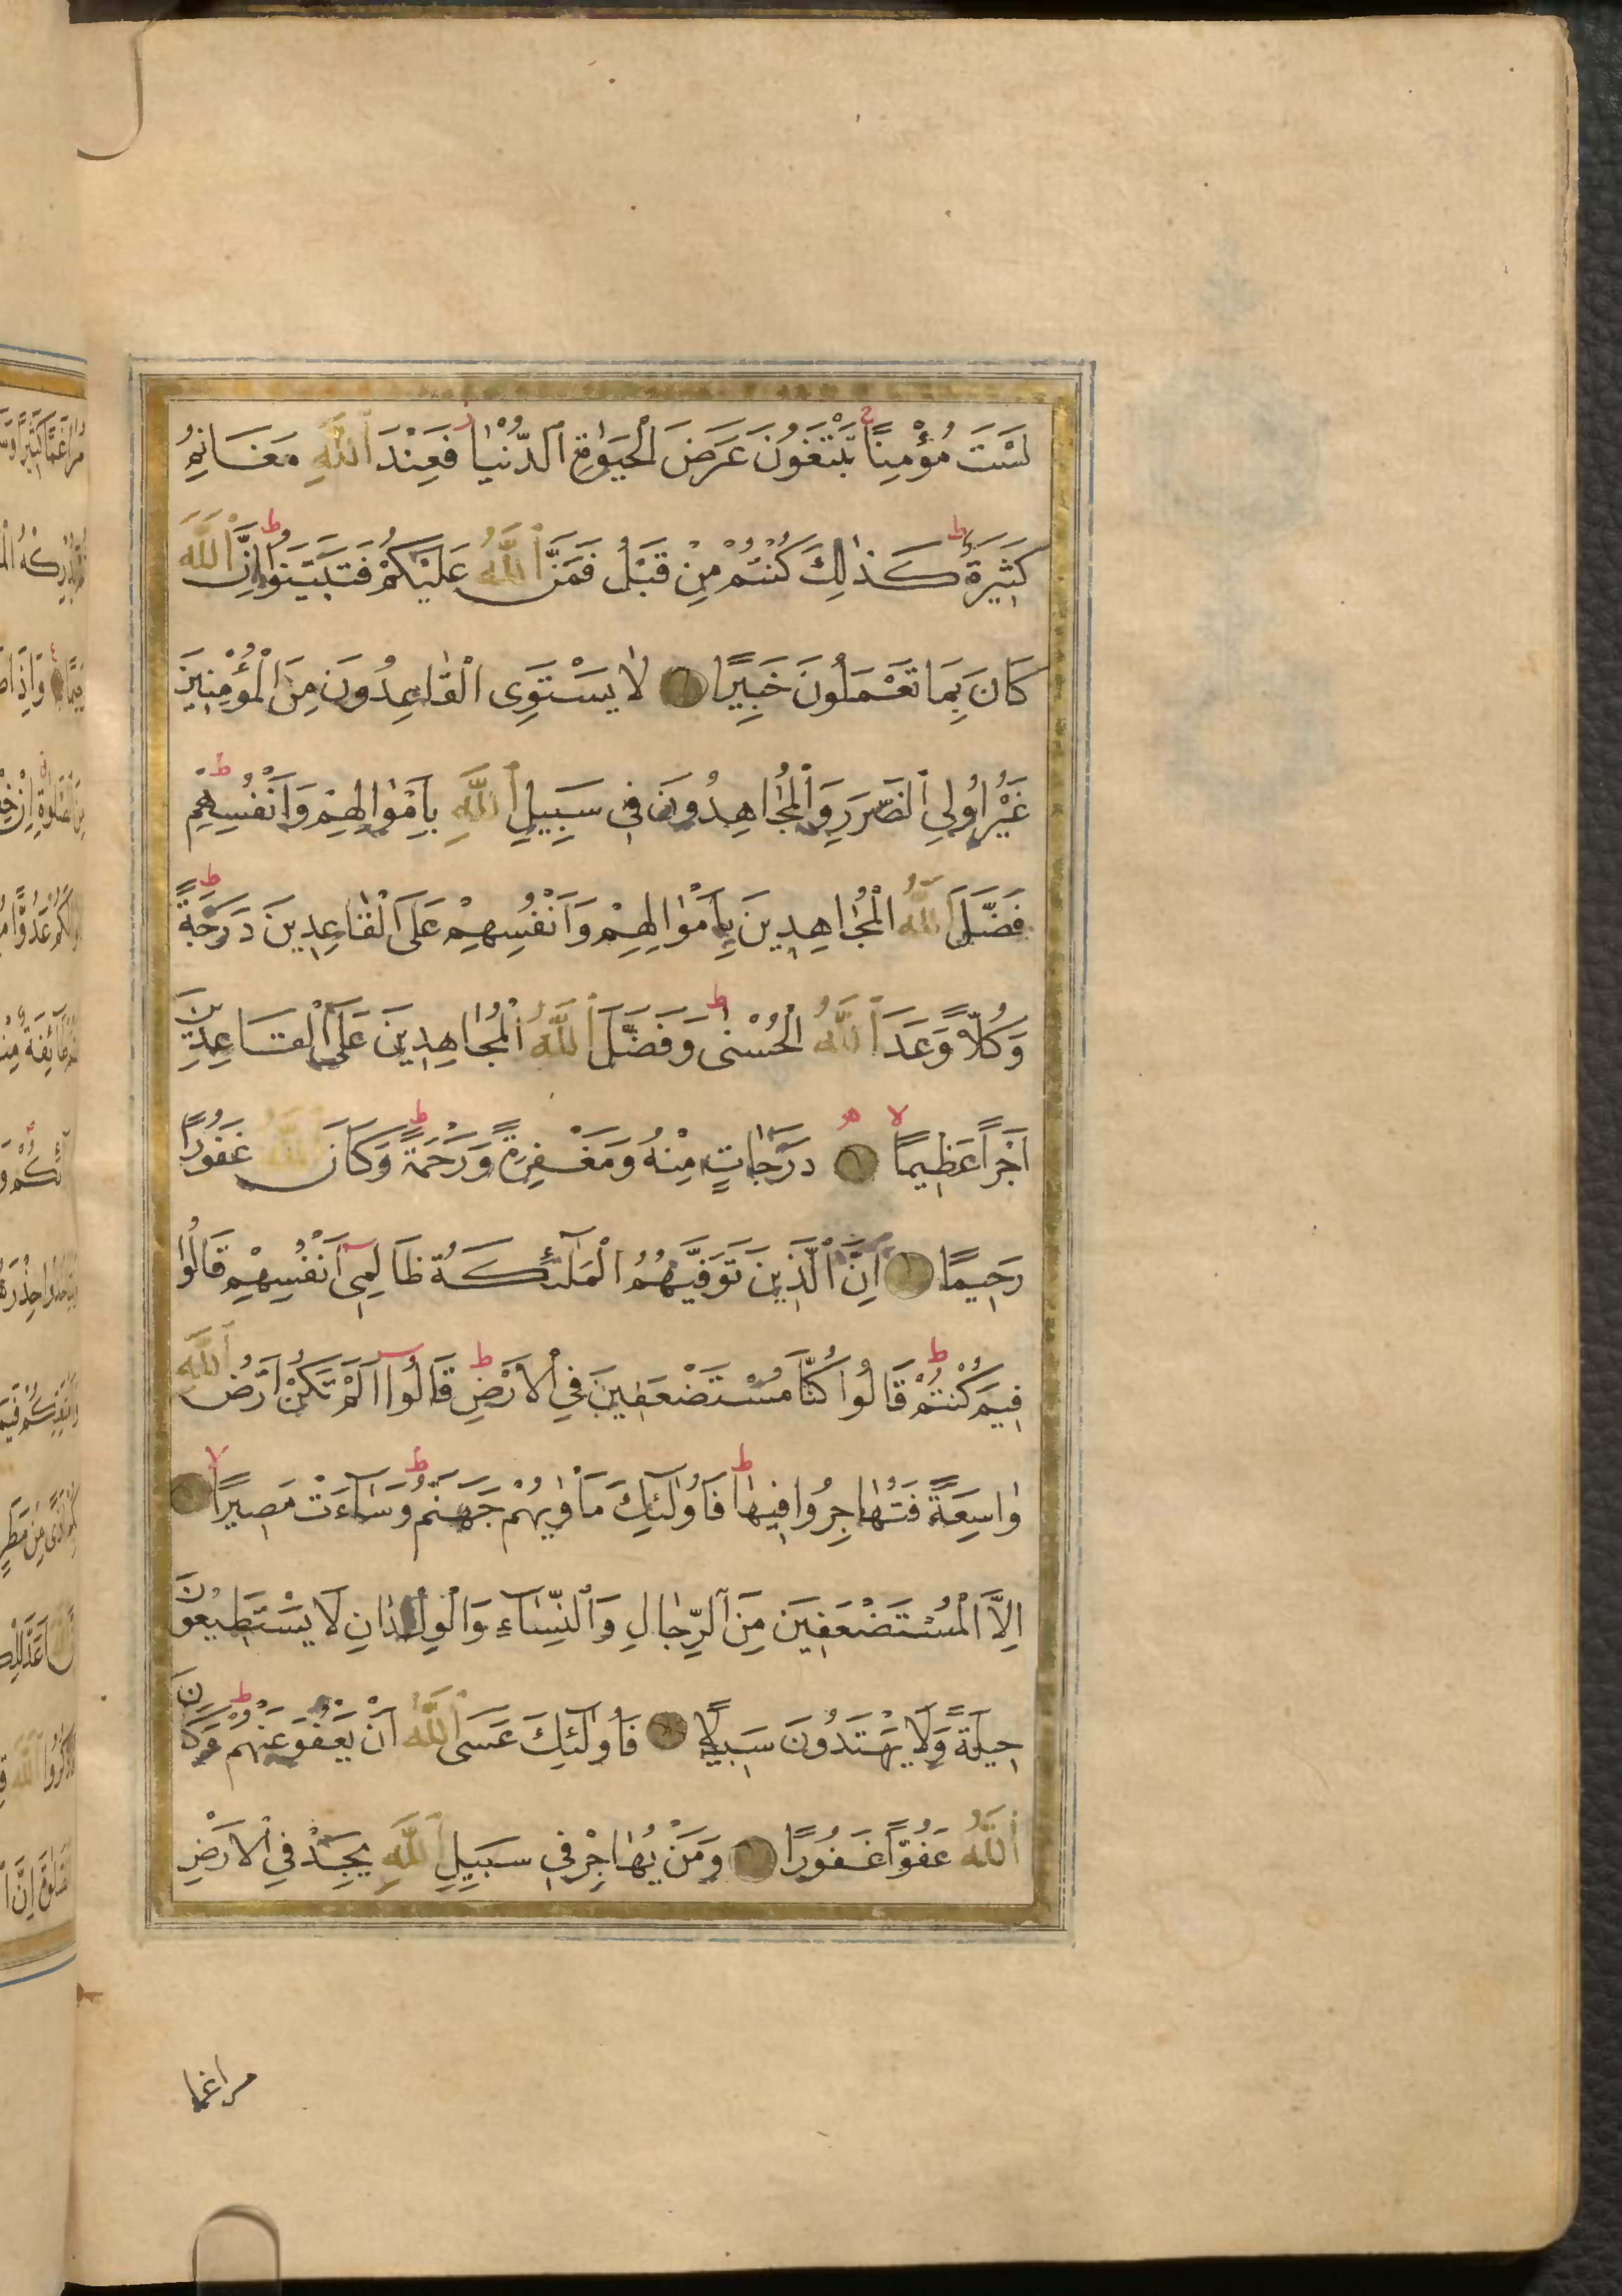 لَسْتَ مُؤْمِنًا تَبْتَغُونَ عَرَضَ الْحَيٰوةِ الدُّنْيٰا فَعِنْدَ اللّٰهِ مَغَانِمُ
كَثِيرَةٌ كَذٰلِكَ كُنْتُمْ مِنْ قَبْلُ فَمَنَّ اللّٰهُ عَلَيْكُمْ فَتَبَيَّنُوا اِنَّ اللّٰهَ
كَانَ بِمَا تَعْمَلُونَ خَبِيرًا لٰا يَسْتَوِى الْقٰاعِدُونَ مِنَ الْمُؤْمِنِينَ
غَيْرُ اُولِي الضَّرَرِ وَالْمُجٰاهِدُونَ فِى سَبِيلِ اللّٰهِ بِاَمْوٰالِهِمْ وَاَنْفُسِهِمْ
فَضَّلَ اللّٰهُ الْمُجٰاهِدِينَ بِاَمْوٰالِهِمْ وَاَنْفُسِهِمْ عَلَى الْقٰاعِدِينَ دَرَجَةً
وَكُلًّا وَعَدَ اللّٰهُ الْحُسْنٰى وَفَضَّلَ اللّٰهُ الْمُجٰاهِدِينَ عَلَى الْقَاعِدِينَ
اَجْرًا عَظِيمًا دَرَجٰاتٍ مِنْهُ وَمَغْفِرَةً وَرَحْمَةً وَكَانَ اللّٰهُ غَفُورًا
رَحِيمًا اِنَّ الَّذِينَ تَوَفّٰيهُمُ الْمَلٰٓئِكَةُ ظَالِمِىٓ اَنْفُسِهِمْ قَالُوا
فِيمَ كُنْتُمْ قَالُوا كُنَّا مُسْتَضْعَفِينَ فِي الْاَرْضِ قَالُوٓا اَلَمْ تَكُنْ اَرْضُ اللّٰهِ
وٰاسِعَةً فَتُهٰاجِرُوا فِيهٰا فَاُولٰٓئِكَ مَأْوٰيهُمْ جَهَنَّمُ وَسَآءَتْ مَصِيرًا
اِلَّا الْمُسْتَضْعَفِينَ مِنَ الرِّجٰالِ وَالنِّسٰآءِ وَالْوِلْدٰانِ لَا يَسْتَطِيعُونَ
حِيلَةً وَلَا يَهْتَدُونَ سَبِيلًا فَاُولٰٓئِكَ عَسَى اللّٰهُ اَنْ يَعْفُوَ عَنْهُمْ وَكَانَ
اللّٰهُ عَفُوًّا غَفُورًا وَمَنْ يُهٰاجِرْ فِى سَبِيلِ اللّٰهِ يَجِدْ فِي الْاَرْضِ
مراغما